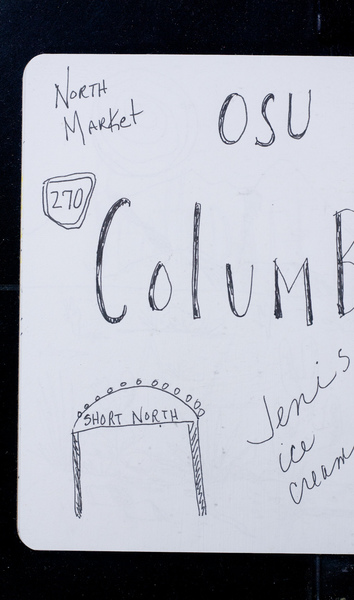 North
Market
OSU
270
ColumB
SHORT NORTH
Jenis
ice
cream